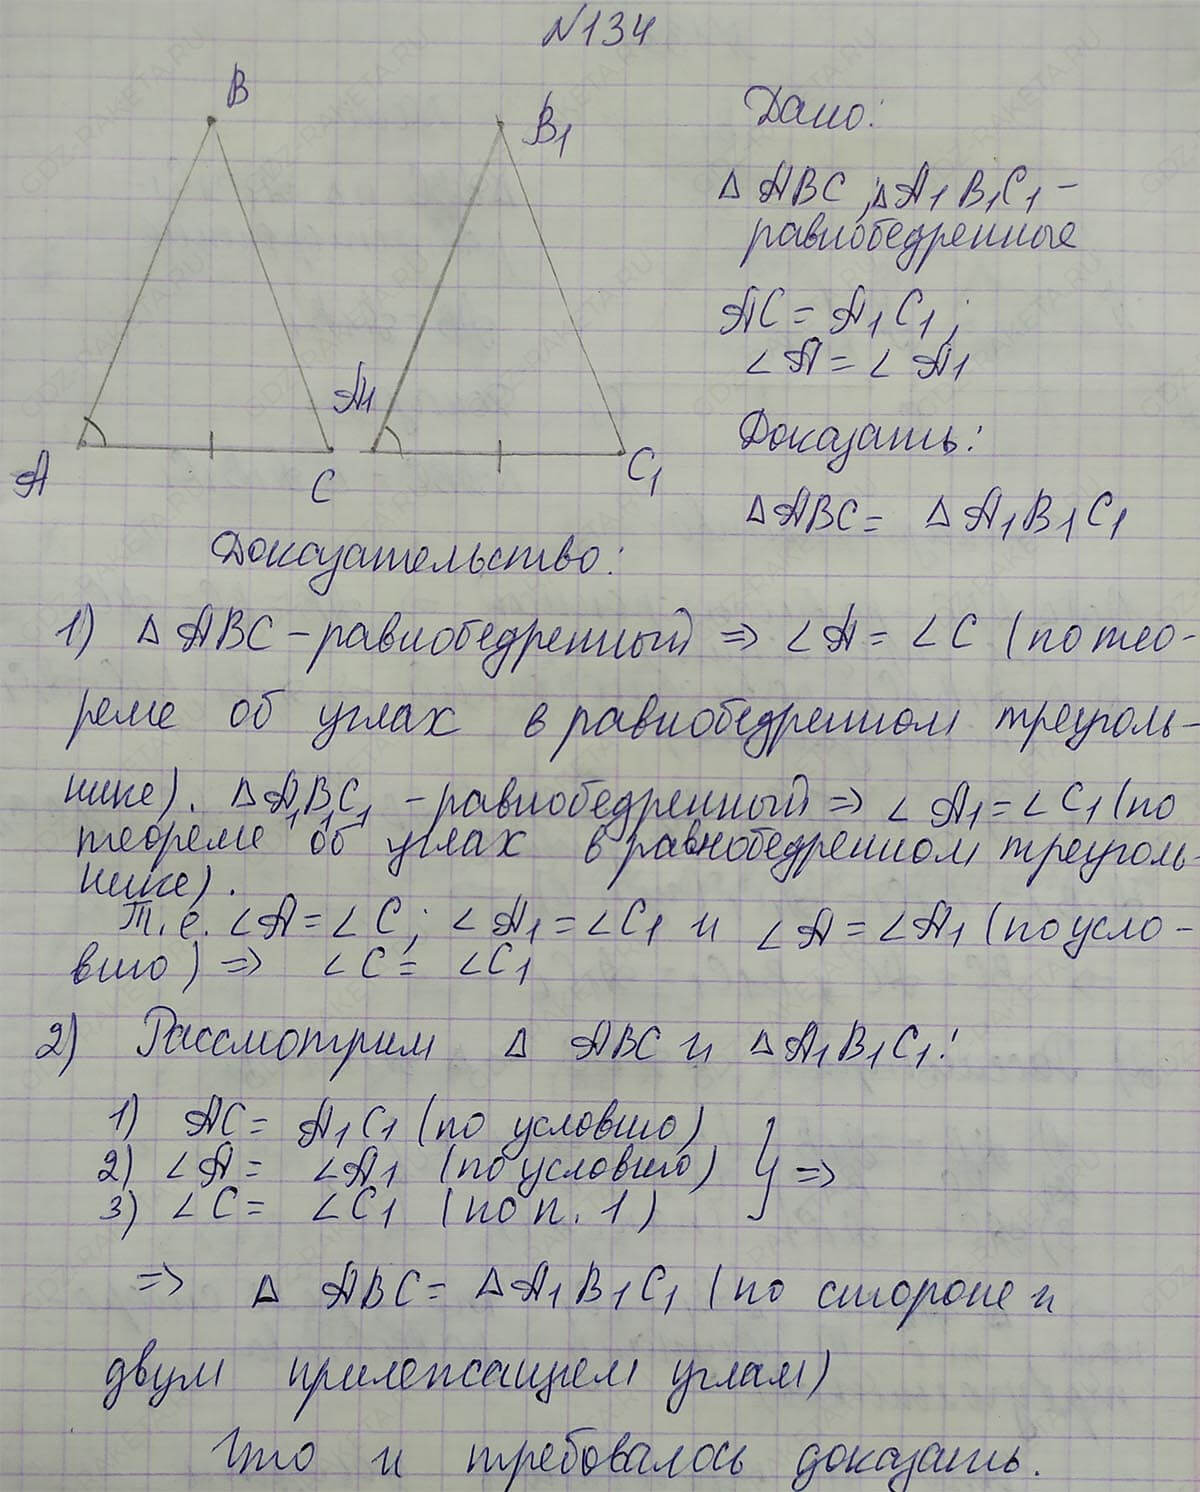 N134
B
B1
Дано:
Δ ABC; Δ A1B1C1 –
равнобедренные
AC = A1C1;
∠A = ∠A1
A1
A
C
C1
Доказать:
ΔABC = ΔA1B1C1
Доказательство:
1) ΔABC – равнобедренный => ∠A = ∠C (по тео-
реме об углах в равнобедренном треуголь-
нике). ΔA1B1C1 – равнобедренный => ∠A1 = ∠C1 (по
теореме об углах в равнобедренном треуголь-
нике).
Т.е. ∠A = ∠C; ∠A1 = ∠C1 и ∠A = ∠A1 (по усло-
вию) => ∠C = ∠C1
2) Рассмотрим Δ ABC и ΔA1B1C1:
1) AC = A1C1 (по условию)
2) ∠A = ∠A1 (по условию) } =>
3) ∠C = ∠C1 (по п. 1)
=> Δ ABC = ΔA1B1C1 (по стороне и
двум прилежащем углам)
Что и требовалось доказать.